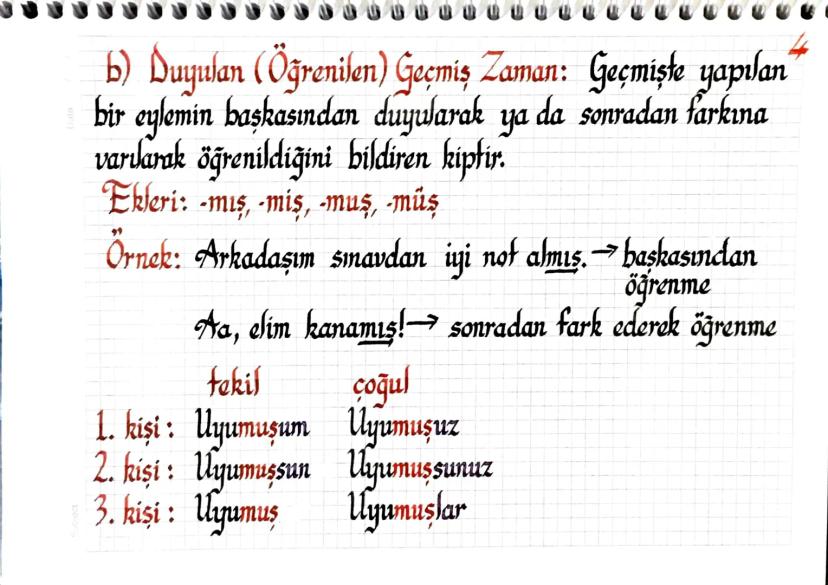 4
b) Duyulan (Öğrenilen) Geçmiş Zaman: Geçmişte yapılan
bir eylemin başkasından duyularak ya da sonradan farkına
varılarak öğrenildiğini bildiren kiptir.
Ekleri: -mış, -miş, -muş, -müş
Örnek: Arkadaşım sınavdan iyi not almış. → başkasından
öğrenme
Aa, elim kanamış! → sonradan fark ederek öğrenme
tekil çoğul
1. kişi : Uyumuşum Uyumuşuz
2. kişi : Uyumuşsun Uyumuşsunuz
3. kişi : Uyumuş Uyumuşlar